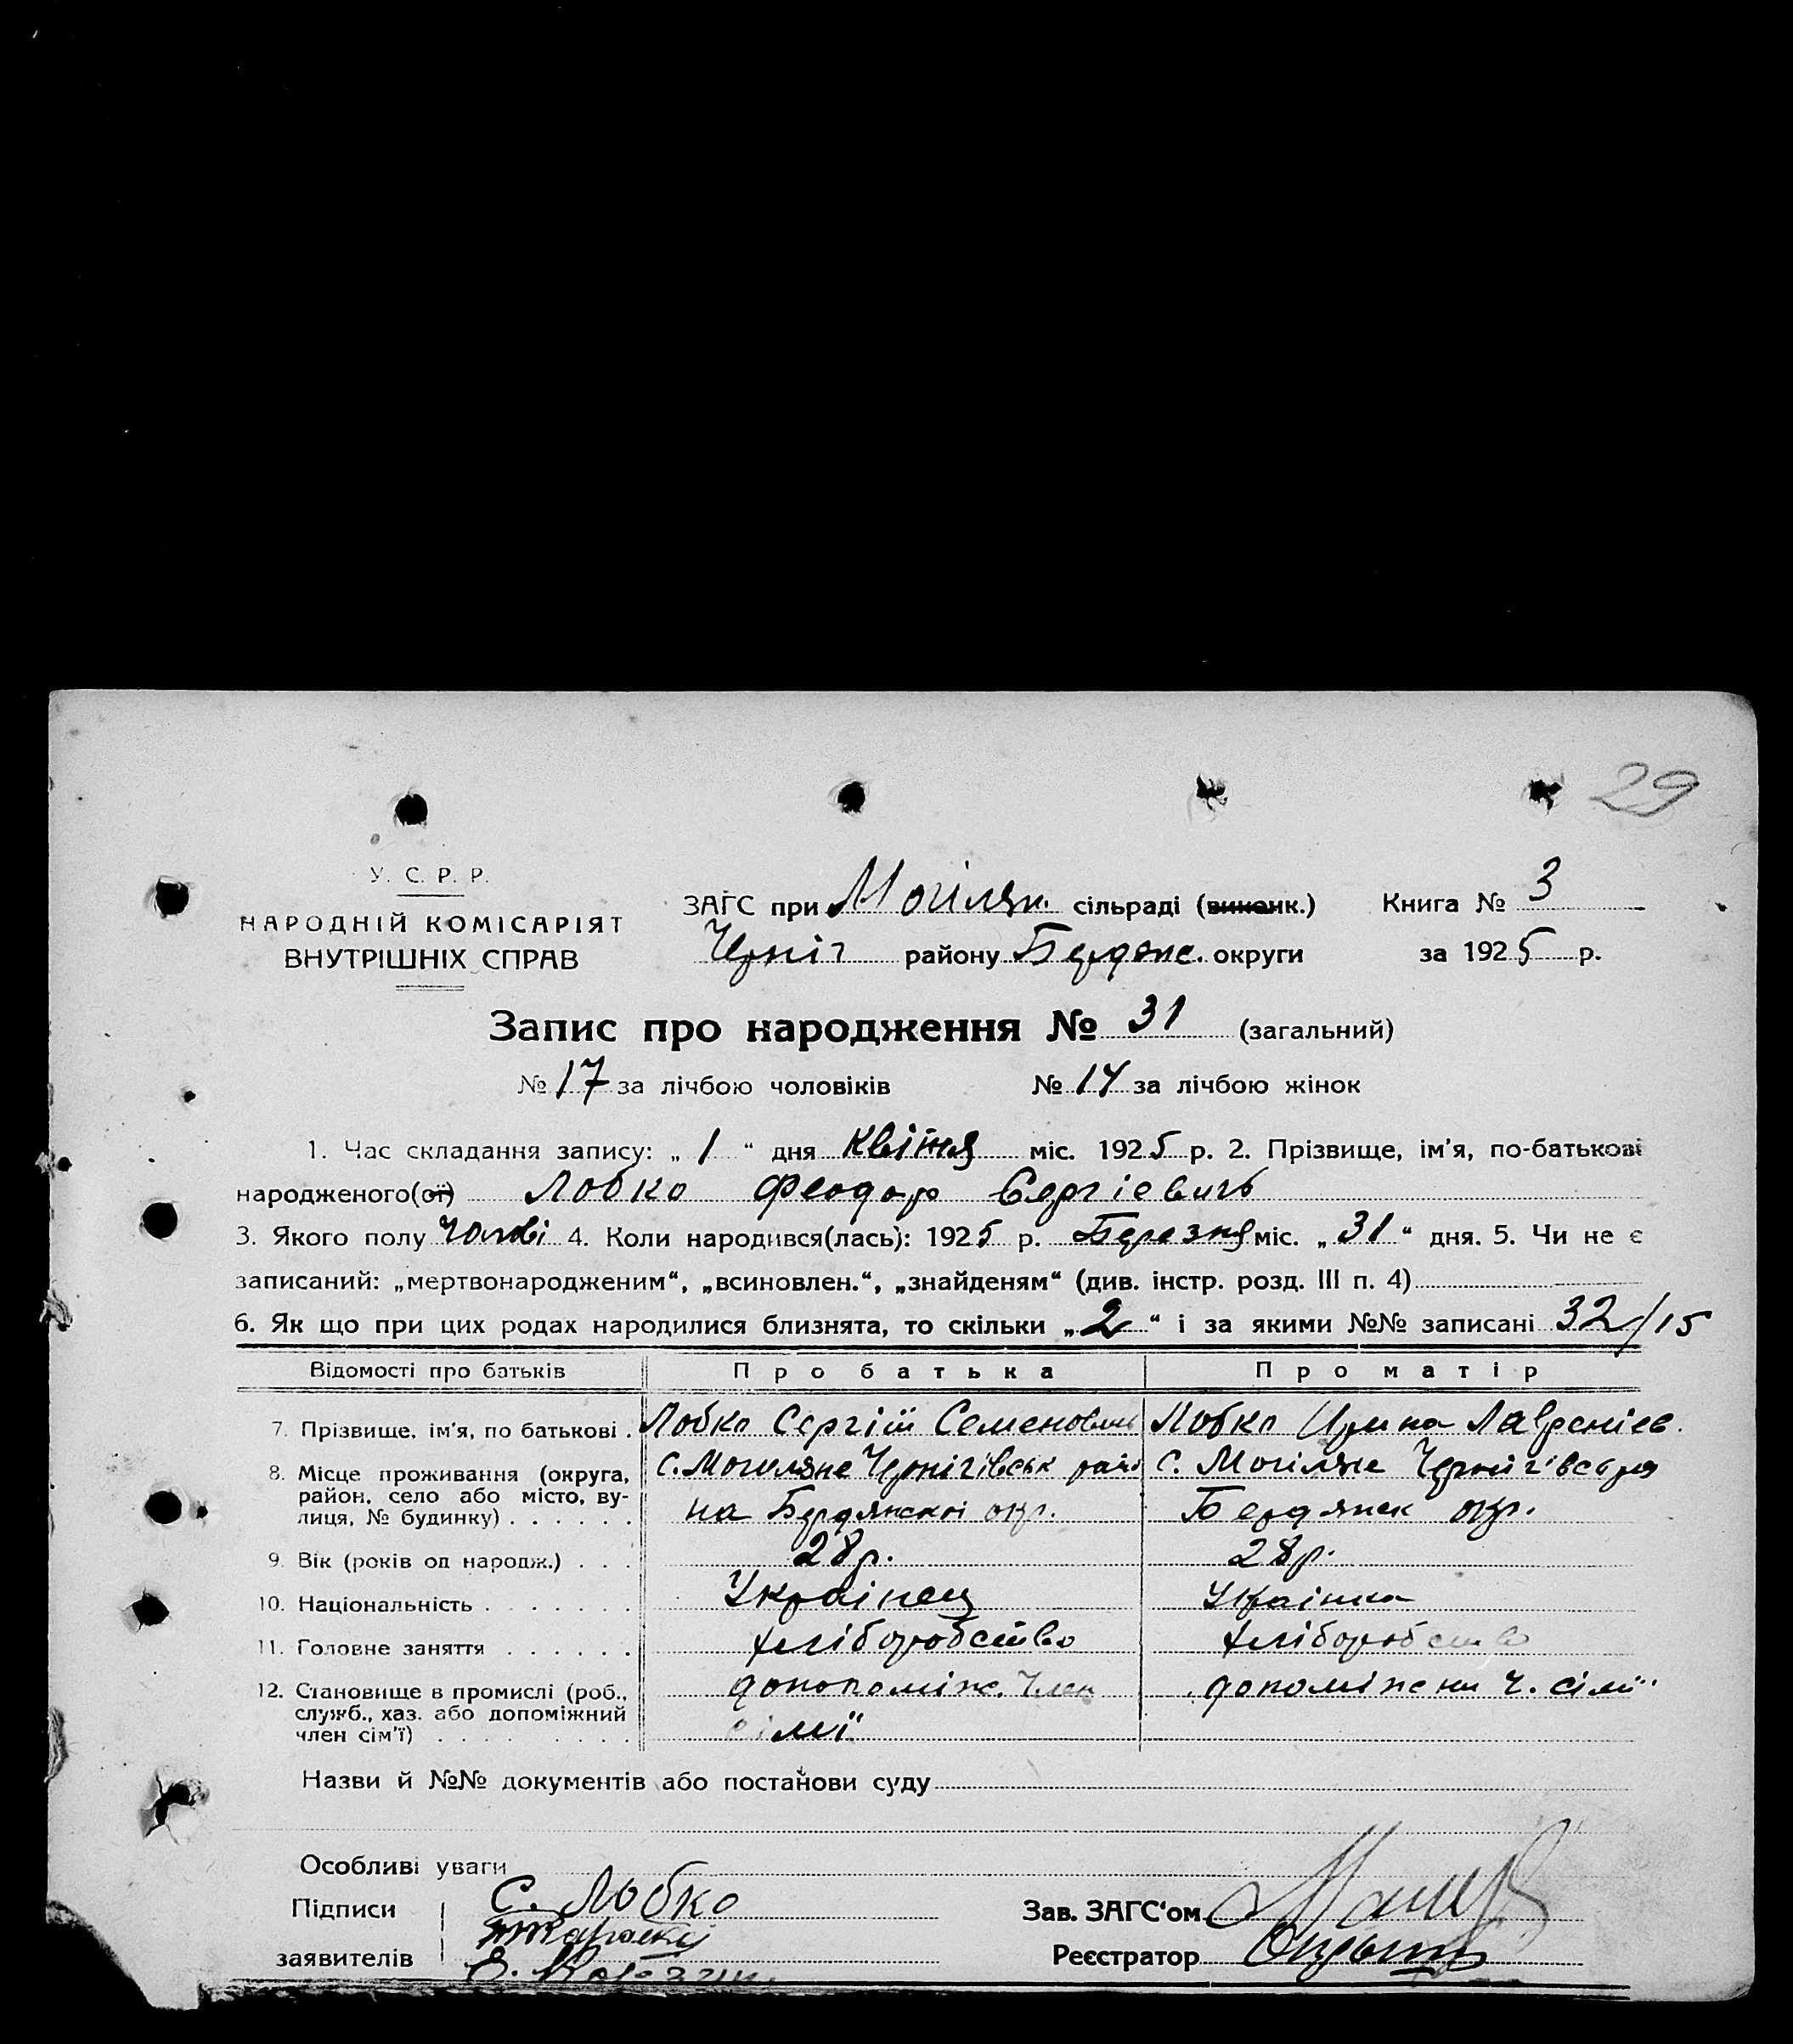 29
У. С. Р. Р.
НАРОДНІЙ КОМІСАРІЯТ
ВНУТРІШНІХ СПРАВ
ЗАГС при Могілян. сільраді (виконк.) Книга № 3
Черніг району Бердянс. округи за 1925 р.
Запис про народження № 31 (загальний)
№ 17 за лічбою чоловіків № 14 за лічбою жінок
1. Час складання запису: „ 1 “ дня квітня міс. 1925 р. 2. Прізвище, ім'я, по-батькові
народженого(ої) Лобко Феодор Сергіевичь
3. Якого полу чолові 4. Коли народився(лась): 1925 р. Березня міс. „ 31 “ дня. 5. Чи не є
записаний: „мертвонародженим“, „всиновлен.“, „знайденям“ (див. інстр. розд. III п. 4)
6. Як що при цих родах народилися близнята, то скільки „ 2 “ і за якими №№ записані 32/15
Відомості про батьків Про батька Про матір
7. Прізвище, ім'я, по батькові . Лобко Сергій Семенович Лобко Ирина Лаврентіев.
8. Місце проживання (округа, район, село або місто, вулиця, № будинку) . . . . . . С. Могиляне Чернігівськ райо С. Могіляне
на Бердянскоі окр. Бердянск окр.
9. Вік (років од народж.) . . . 28 р. 28 р.
10. Національність . . . . . . . Українец Українка
11. Головне заняття . . . . . . хліборобство хліборобство
12. Становище в промислі (роб., служб., хаз. або допоміжний член сім'ї) . . . . . . . . Член сімї ч. сімї
Назви й №№ документів або постанови суду
Особливі уваги
Підписи С. Лобко Зав. ЗАГС'ом
заявителів Реєстратор